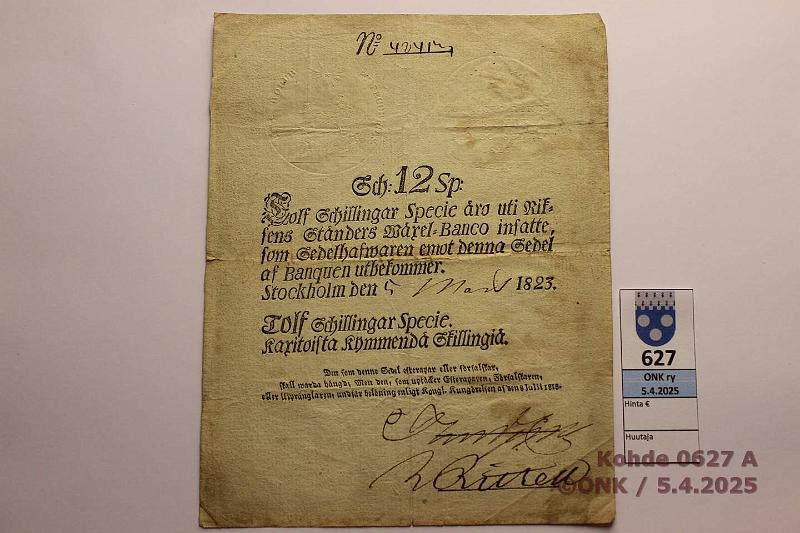 No 42417
Sch: 12 Sp:
Tolf Schillingar Specie äro uti Rik-
sens Ständers Wäxel-Banco insatte,
som Sedelhafwaren emot denna Sedel
af Banquen utbekommer.
Stockholm den 5 Mars 1823.
Tolf Schillingar Specie.
Kaxitoista Kymmendä Skillingiä.
Den som denne Sedel efterapar eller förfalskar,
skall warda hängd; Men den, som uptäcker Efterapare, Förfalskaren,
eller Utprånglaren, undfår belöning enligt Kongl. Kungörelsen af den 8 Julii 1818.
627
ONK ry
5.4.2025
Hinta €
Huutaja
Kohde 0627 A
©ONK / 5.4.2025